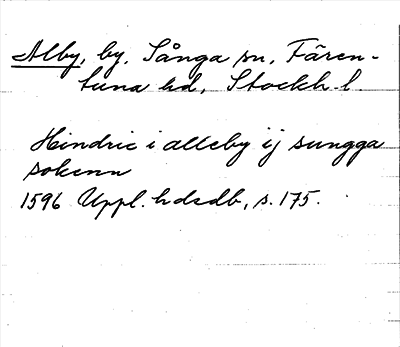 Alby, by, Sånga sn, Fären-
tuna hd, Stockh. l.
Hindric i alleby ij sungga
sokenn
1596 Uppl. hdsdb, s. 175.